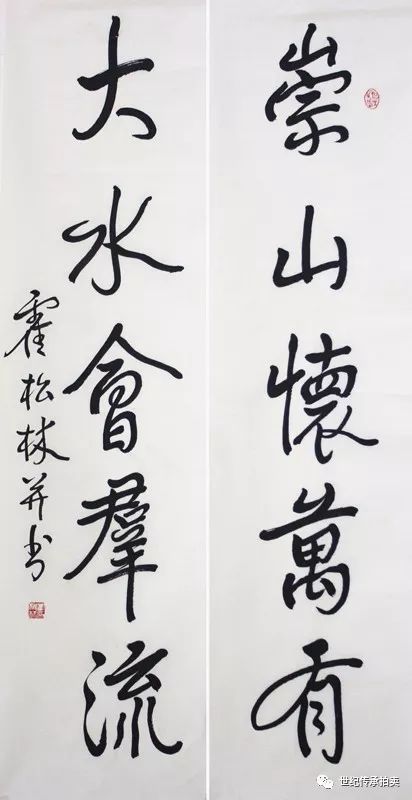 崇山懷萬有
大水會羣流
霍松林并书
世纪传承拍卖